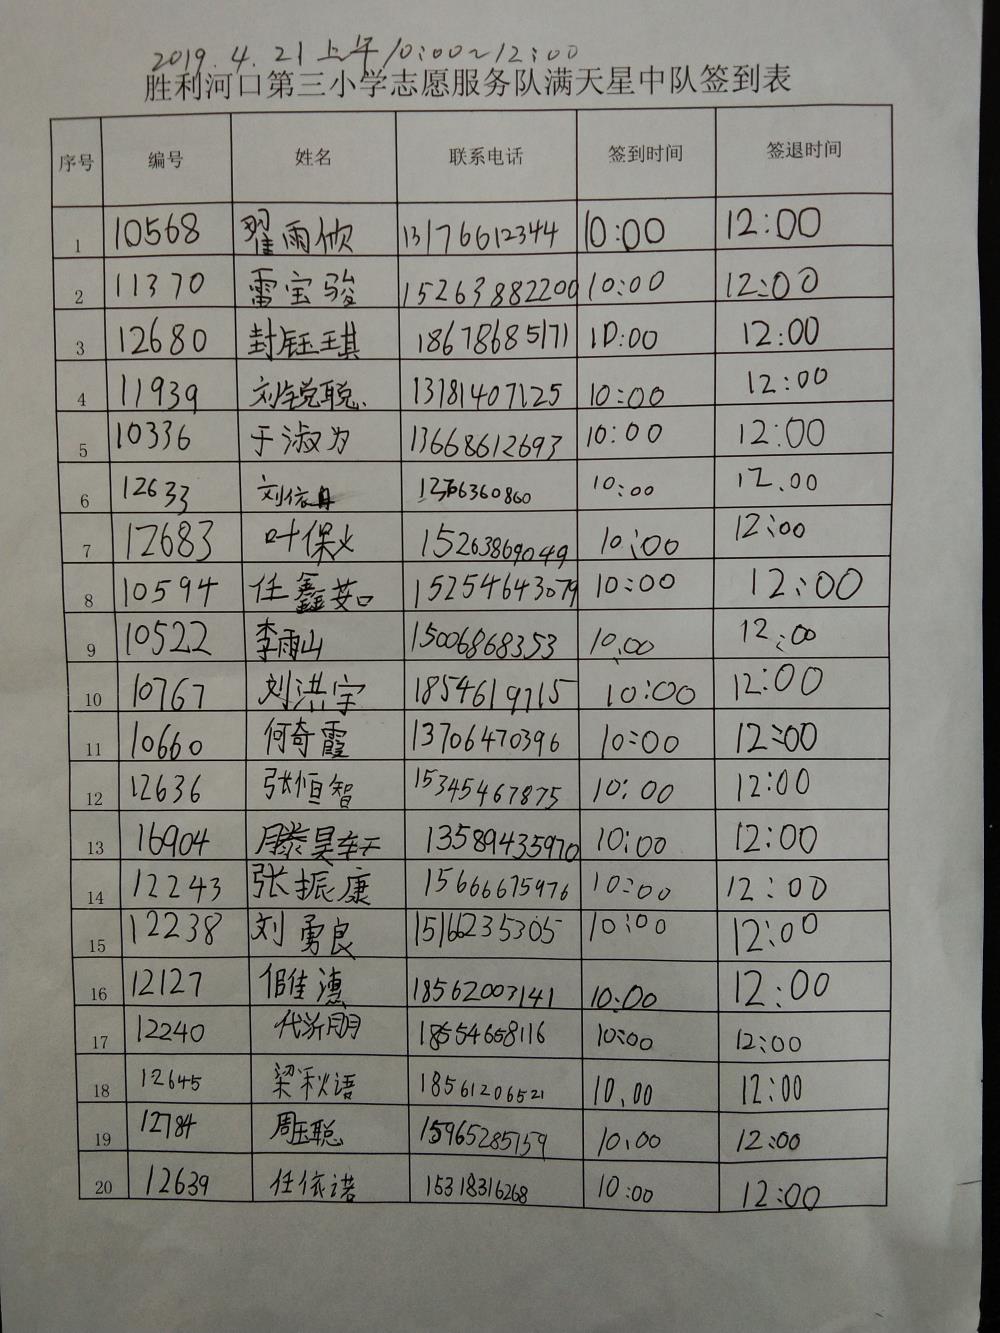 2019.4.21上午10:00~12:00
胜利河口第三小学志愿服务队满天星中队签到表
序号 编号 姓名 联系电话 签到时间 签退时间
1 10568 翟雨欣 13176612344 10:00 12:00
2 11370 雷宝骏 15263882200 10:00 12:00
3 12680 封钰琪 18678685171 10:00 12:00
4 11939 刘锐聪 13181407125 10:00 12:00
5 10336 于淑为 13668612693 10:00 12:00
6 12633 刘依 10:00 12.00
7 12683 叶保义 15263869049 10:00 12:00
8 10594 任鑫茹 15254643079 10:00 12:00
9 10522 李雨山 15006868353 10:00 12:00
10 10767 刘洪宇 1854619715 10:00 12:00
11 10660 何奇霞 13706470396 10:00 12:00
12 12636 张恒智 15345467875 10:00 12:00
13 16904 滕昊轩 13589435970 10:00 12:00
14 12243 张振康 15666675976 10:00 12:00
15 12238 刘勇良 15166235305 10:00 12:00
16 12127 18562003141 10:00 12:00
17 12240 代沂朋 18554658116 10:00 12:00
18 12645 梁秋语 18561206521 10.00 12:00
19 12784 周玉聪 15965285759 10.00 12:00
20 12639 任依诺 15318316268 10:00 12:00